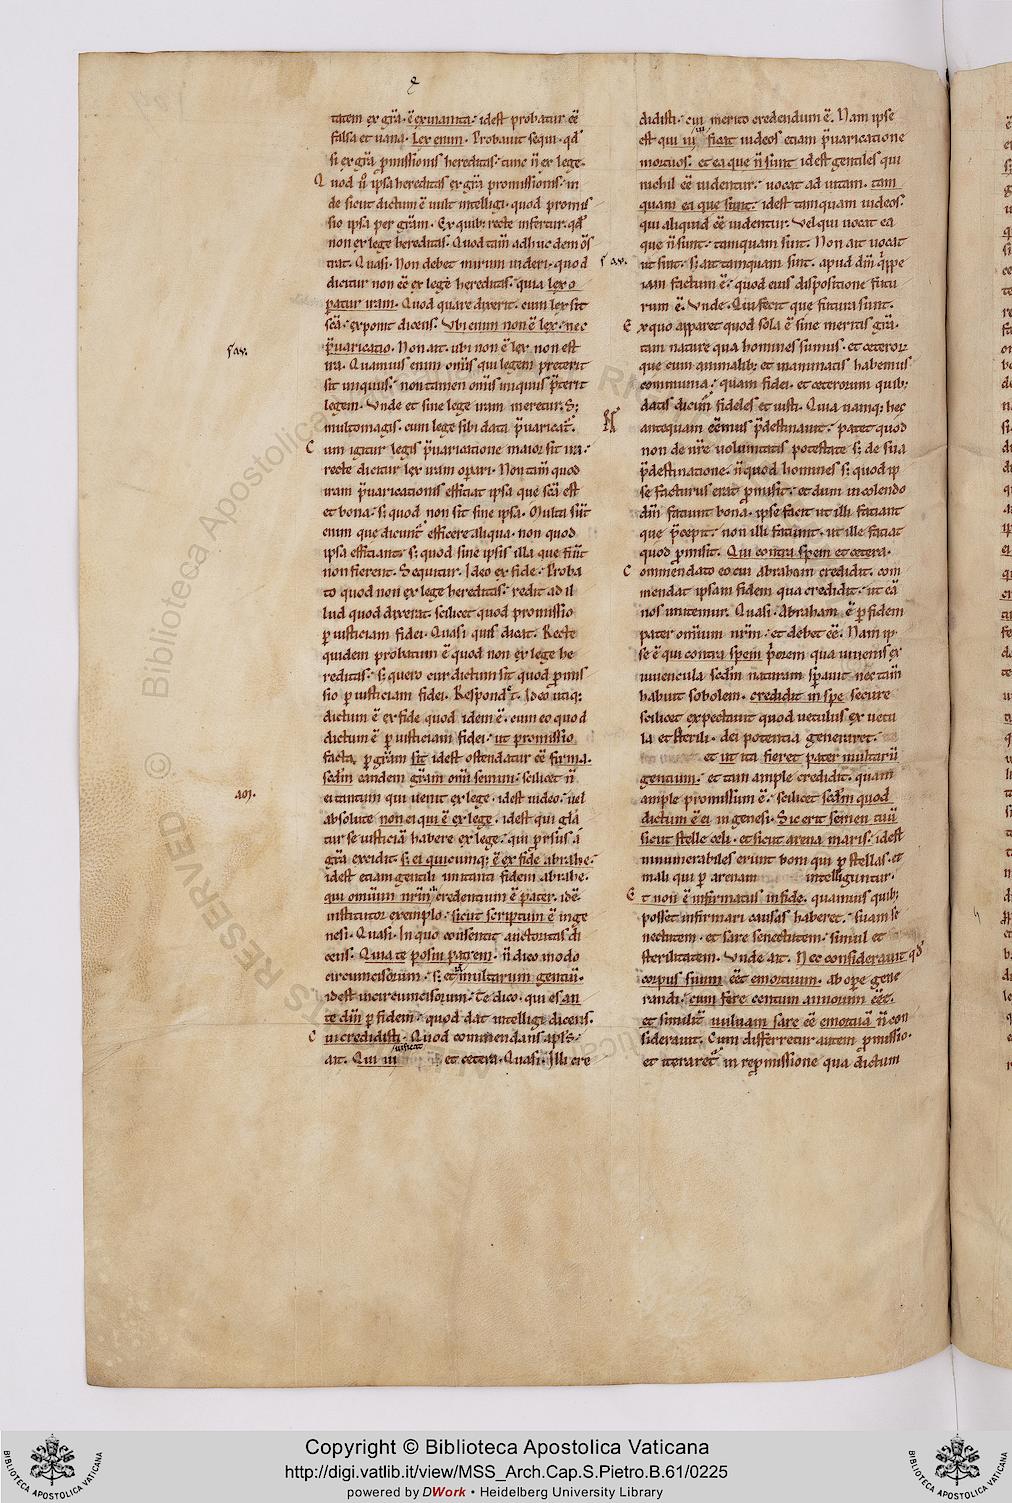 tatem ex gr̄a· ē exinanita· idest probatur eē
falsa et uana. Lex enim. Probauit sequi· qd̄
si ex gr̄a ꝓmissionis hereditas· tunc ñ ex lege.
Quod ū ipsa hereditas ex gr̄a promissionis· in
de sicut dictum ē uult intelligi· quod promis
sio ipsa per gr̄am. Ex quib; recte infertur· qd̄
non ex lege hereditas. Quod tam̄ adhuc demōs
trat. Quasi· Non debet mirum uideri· quod
dicitur non eē ex lege hereditas· quia lex o
ꝑatur iram. Quod quare dixerit· cum lex sit
sc̄a· exponit dicens. Vbi enim non ē lex· nec
p̄uaricatio. Non ait· ubi non ē lex non est
ira. Quamuis enim om̄is qui legem preterit
sit iniquus· non tamen om̄is iniquus p̄terit
legem. Vnde et sine lege iram meretur. S;
multomagis· cum lege sibi data p̄uaricat̄.
Cum igitur legis p̄uaricatione maior sit ira·
recte dicitur lex iram oꝑari. Non tam̄ quod
iram p̄uaricationis efficiat ipsa que sc̄a est
et bona· s; quod non sit sine ipsa. Multa sūt
enim que dicunt̄ efficere aliqua· non quod
ipsa efficiant· s; quod sine ipsis illa que fiūt
non fierent. Sequitur. Ideo ex fide· Proba
to quod non ex lege hereditas· redit ad il
lud quod dixerat· scilicet quod promissio
ꝑ iusticiam fidei. Quasi quis dicat. Recte
quidem probatum ē quod non ex lege he
reditas· s; quero cur dictum sit quod ꝓmis
sio ꝑ iusticiam fidei. Respondet. Ideo utiq;
dictum ē ex fide quod idem ē· cum eo quod
dictum ē ꝑ iusticiam fidei· ut promissio
facta ꝑ gr̄am sit idest ostendatur eē firma·
scd̄m eandem gr̄am om̄i semini· scilicet ñ
ei tantum qui uenit ex lege· idest iudeo· uel
absolute non ei qui ē ex lege· idest qui glā
tur se iusticiā habere ex lege· qui ꝓrsus a
gr̄a excidit s; ei quicumq; ē ex fide abrahe·
idest etiam gentili imitanti fidem abrahe·
qui omīum nr̄m credentium ē pater· idē
institutor exemplo· sicut scriptum ē inge
nesi. Quasi. In quo consentit auctoritas di
cens. Quia te posui patrem· ñ dico modo
circumcisorum· s; et multarum gentiū·
idest incircumcisorum. Te dico· qui es an
te dm̄ ꝑ fidem· quod dat intelligi dicens·
cui credidisti. Quod commendans apl's·
ait. Qui uiuificat et cetera. Quasi. Illi cre
didisti· cui merito credendum ē. Nam ipse
est qui uiuificat iudeos etiam p̄uaricatione
mortuos· et ea que ñ sunt idest gentiles qui
nichil eē uidentur· uocat ad uitam· tam
quam ea que sunt· idest tamquam iudeos·
qui aliquid eē uidentur. Vel qui uocat ea
que ñ sunt· tamquam sunt. Non ait uocat
ut sint· s; ait tamquam sint. apud dm̄ q̄ppe
iam factum ē· quod eius dispositione futu
rum ē. Vnde. Qui fecit que futura sunt.
Ex quo apparet quod sola ē sine meritis gr̄a·
tam nature qua homines sumus· et ceterorꝝ
que cum animalib; et inanimatis habemus
communia· quam fidei· et ceterorum quib;
datis dicim̄ fideles et iusti. Quia namq; hec
antequam eēmus p̄destinauit· patet quod
non de nr̄e uoluntatis potestate s; de sua
p̄destinatione. ñ quod homines s; quod ip
se facturus erat ꝓmisit· et dum in colendo
dm̄ faciunt bona· ipse facit ut illi faciant
que p̄cepit· non illi faciunt· ut ille faciat
quod ꝓmisit. Qui contra spem et cetera.
Commendato eo cui abraham credidit· com
mendat ipsam fidem qua credidit· ut eā
nos imitemur. Quasi. Abraham ē ꝑ fidem
pater omīum nr̄m· et debet eē. Nam ip
se ē qui contra spem p̄orem qua iuuenis ex
iuuencula scd̄m naturam sꝑauit nec tam̄
habuit sobolem· credidit in spe secure
scilicet expectauit quod uetulus ex uetu
la et sterili· dei potentia generaret·
et ut ita fieret pater multarū
gentium· et tam ample credidit· quam
ample promissum ē· scilicet scd̄m quod
dictum ē ei in genesi. Sic erit semen tuū
sicut stelle celi· et sicut arena maris· idest
innumerabiles erunt boni qui ꝑ stellas· et
mali qui ꝑ arenam intelliguntur.
Et non ē infirmatus in fide· quamuis quib;
posset infirmari causas haberet· suam se
nectutem· et sare senectutem· simul et
sterilitatem. Vnde ait. Nec considerauit qd̄
corpus suum eēt emortuum· ab oꝑe gene
randi· cum fere centum annorum eēt·
et similit̄ uuluam sare eē emortuā ñ con
siderauit. Cum differretur autem ꝓmissio·
et iteraret in repromissione qua dictum
aug.
Copyright © Biblioteca Apostolica Vaticana
http://digi.vatlib.it/view/MSS_Arch.Cap.S.Pietro.B.61/0225
powered by DWork • Heidelberg University Library
BIBLIOTECA APOSTOLICA VATICANA
BIBLIOTECA APOSTOLICA VATICANA